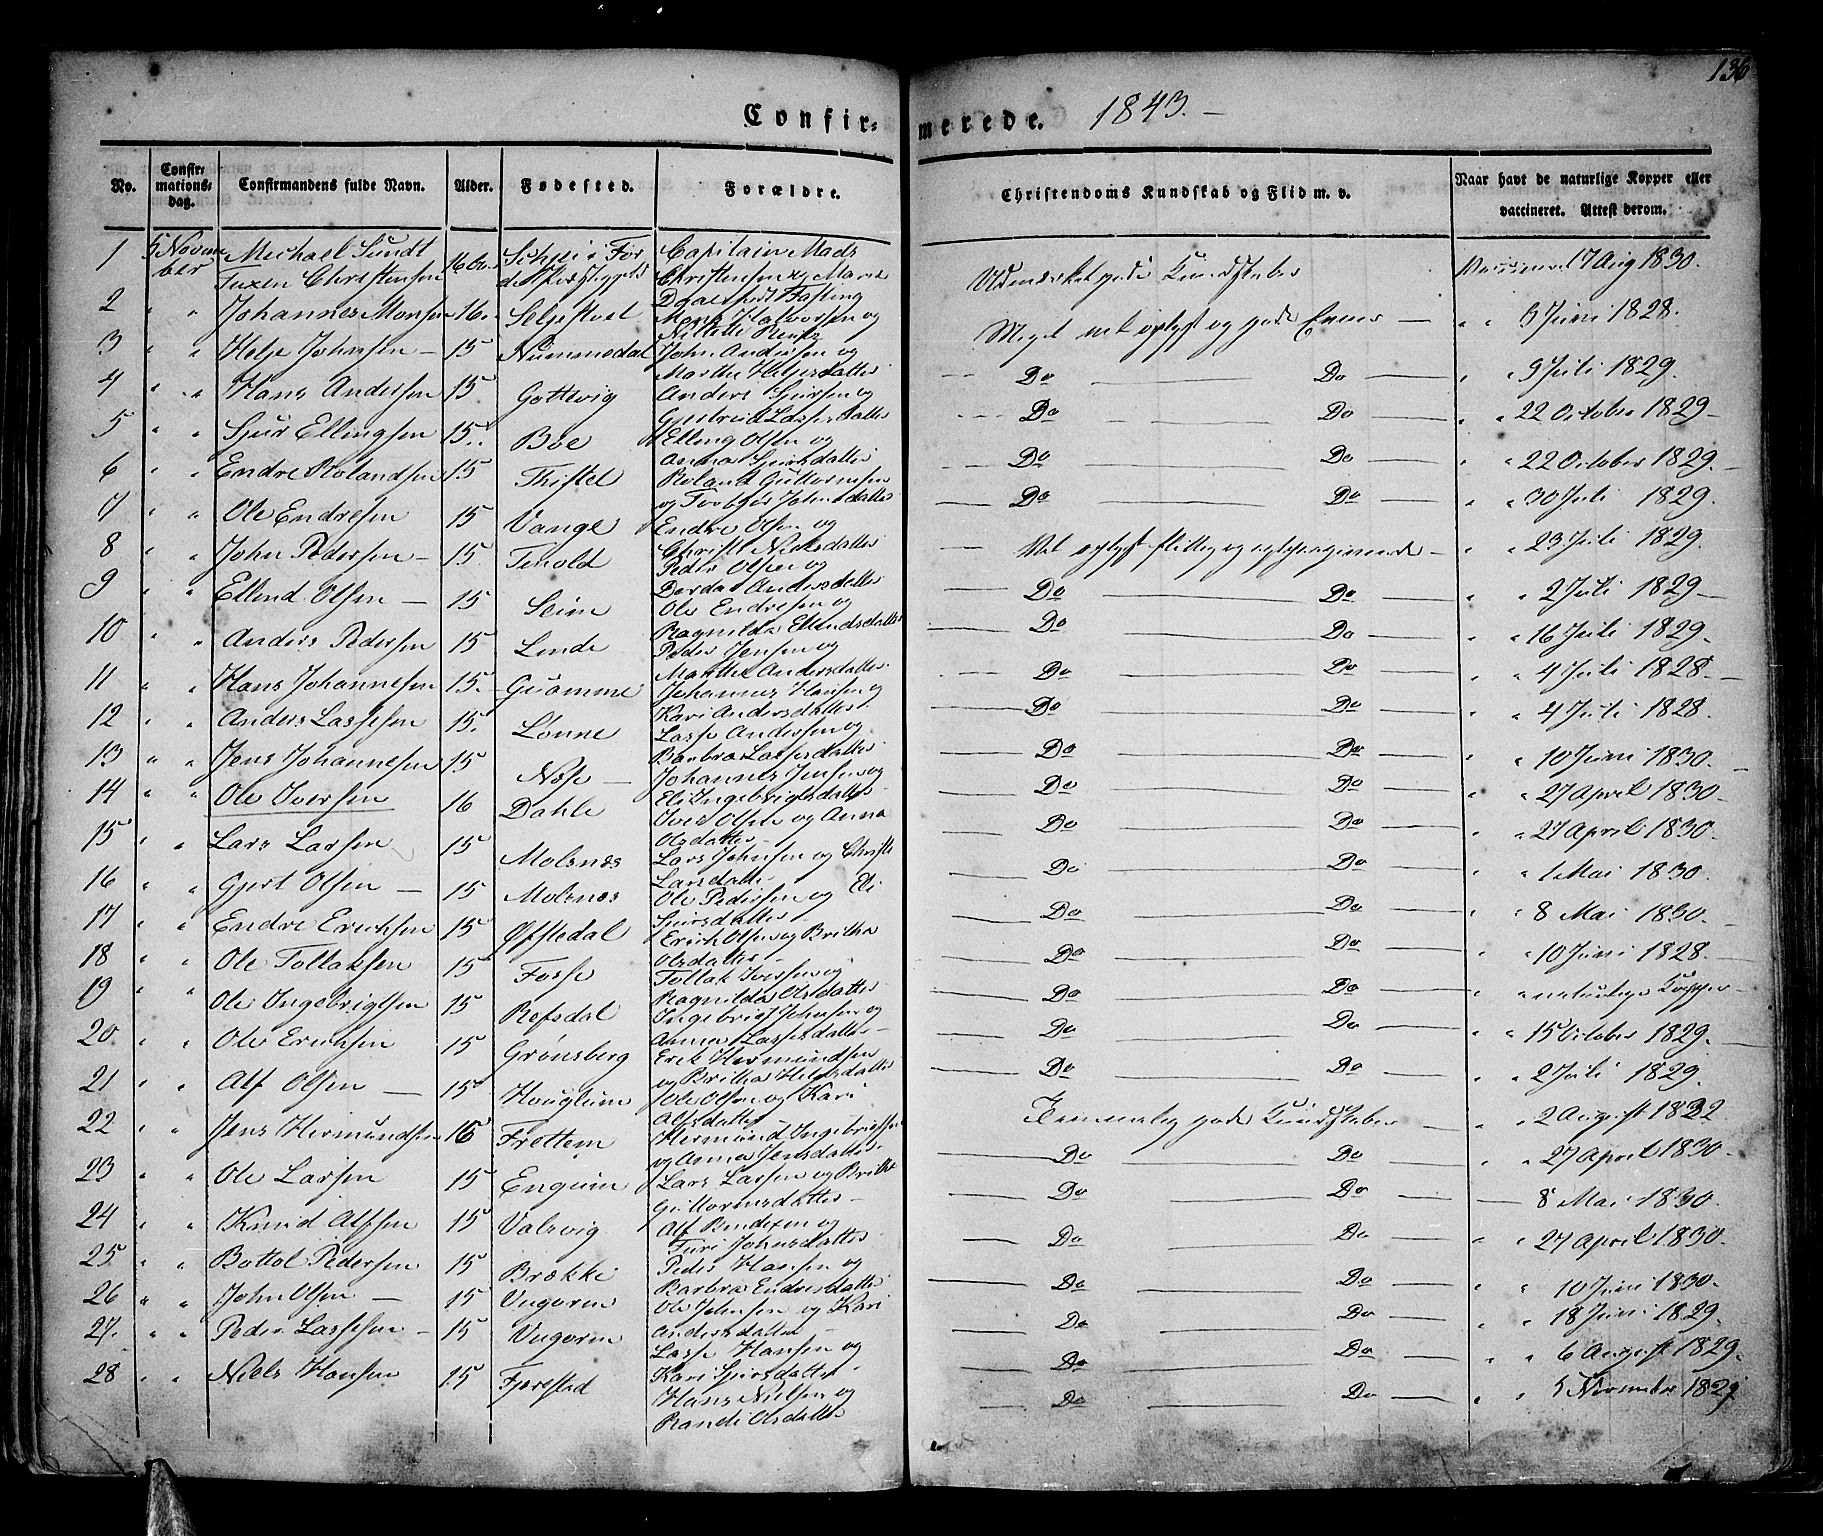 136
Confir- merede. 1843.-
No. Confir-mations-dag. Confirmandens fulde Navn. Alder. Fødested. Forældre. Christendoms Kundskab og Flid m. v. Naar havt de naturlige Kopper eller vaccineret. Attest derom.
1 5 Novem-ber Michael Sundt Tuxen Christensen 16 Capitain Mads Christensen og Kundskaber 17 Aug 1830.
2 " " Johannes Monsen 16. Seljestvet Mons Halvorsen og Meget vel oplyst og gode Evner — " " 5 Juni 1828.
3 " " Helje Johnsen — 15 Nummedal John Andersen og Marthe Heljesdatter Do Do " " 9 Juli 1829.
4 " " Hans Andersen 15 Gottevig Anders Sjursen og Do Do " " 22 October 1829-
5 " " Sjur Ellingsen 15. Boe Elling Olsen og Anna Sjursdatter Do Do " " 22 October 1829-
6 " " Endre Rolandsen 15 Thistel Roland Guttormsen og Torbjør Johnsdatter Do Do " " 30 Juli 1829.
7 " " Ole Endresen 15 Vange Endre Olsen og Christi Nielsdatter Vel oplyst flittig og — " " 23 Juli 1829.
8 " " John Pedersen — 15 Tenold Peder Olsen og Dorda Andersdatter Do Do " " 2 Juli 1829
9 " " Ellend Olsen — 15 Seim Ole Endresen og Ragnilda Ellendsdatter Do Do " " 16 Juli 1829.
10 " " Anders Pedersen 15 Linde Peder Jensen og Marthe Andersdatter Do Do " " 4 Juli 1828.
11 " " Hans Johannesen 15. Johannes Hansen og Kari Andersdatter Do Do " " 4 Juli 1828.
12 " " Anders Lassesen 15. Lønne Lasse Andersen og Barbra Lassesdatter Do Do " " 10 Juni 1830.
13 " " Jens Johannesen 15 Nøse — Johannes Jensen og Eli Ingebrigtsdatter Do Do " " 27 April 1830-
14 " " Ole Iversen 16 Dahle Iver Olsen og Anna Olsdatter Do Do " " 27 April 1830.
15 " " Lars Larsen 15 Molsnæs Lars Johnsen og Christi Larsdatter Do Do " " 1 Mai 1830.
16 " " Gjert Olsen — 15 Molsnæs Ole Pedersen og Eli Sjursdatter Do Do " " 8 Mai 1830.
17 " " Endre Erichsen 15 Øfstedal Erich Olsen og Britha Olsdatter Do Do " " 10 Juni 1828.
18 " " Ole Tollaksen 15 Fosse Tollak Iversen og Ragnilda Olsdatter Do Do " " naturlige Kopper-
19 " " Ole Ingebrigtsen 15 Refsdal Ingebrigt Johnsen og Anna Lassesdatter — Do Do " " 15 October 1829.
20 " " Ole Erichsen 15 Grønsberg Erik Hermundsen og Britha Do Do " " 2 Juli 1829.
21 " " Alf Olsen — 15 Houglum Ole Olsen og Kari Alfsdatter gode Kundskaber " " 2 August 1832
22 " " Jens Hermundsen 16 Frettem Hermund Ingebrigtsen og Anna Jensdatter Do Do " " 27 April 1830.
23 " " Ole Larsen 15 Engum Lars Larsen og Britha Guttormsdatter Do Do — 8 Mai 1830.
24 " " Knud Alfsen 15 Valsvig Alf Bendixen og Turi Johnsdatter Do Do " " 27 April 1830.
25 " " Bottol Pedersen 15 Brække Peder Hansen og Barbra Endresdatter Do Do " " 10 Juni 1830.
26 " " John Olsen — 15 Ole Johnsen og Kari Andersdatter Do Do " " 18 Juni 1829.
27. " " Peder Lassesen — 15 Lasse Hansen og Kari Sjursdatter Do Do " " 6 August 1829.
28 " " Niels Hansen 15 Fjærestad Hans Nielsen og Randi Olsdatter Do Do " " 5 November 1829